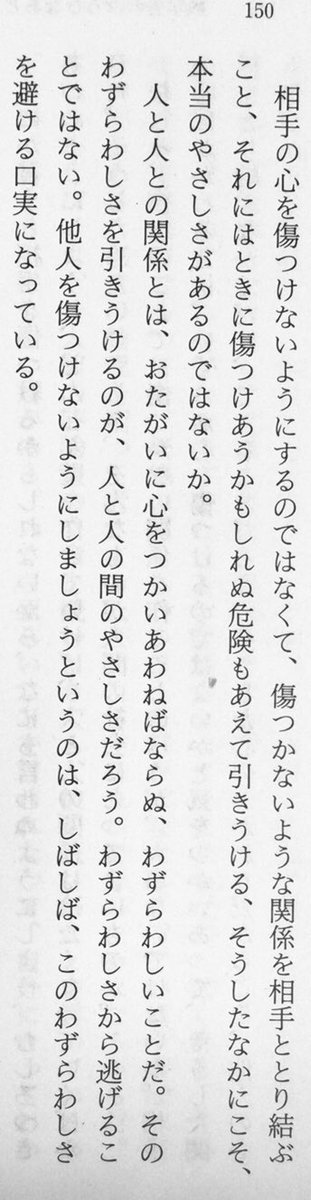 150
相手の心を傷つけないようにするのではなくて、傷つかないような関係を相手ととり結ぶ
こと、それにはときに傷つけあうかもしれぬ危険もあえて引きうける、そうしたなかにこそ、
本当のやさしさがあるのではないか。
人と人との関係とは、おたがいに心をつかいあわねばならぬ、わずらわしいことだ。その
わずらわしさを引きうけるのが、人と人の間のやさしさだろう。わずらわしさから逃げるこ
とではない。他人を傷つけないようにしましょうというのは、しばしば、このわずらわしさ
を避ける口実になっている。